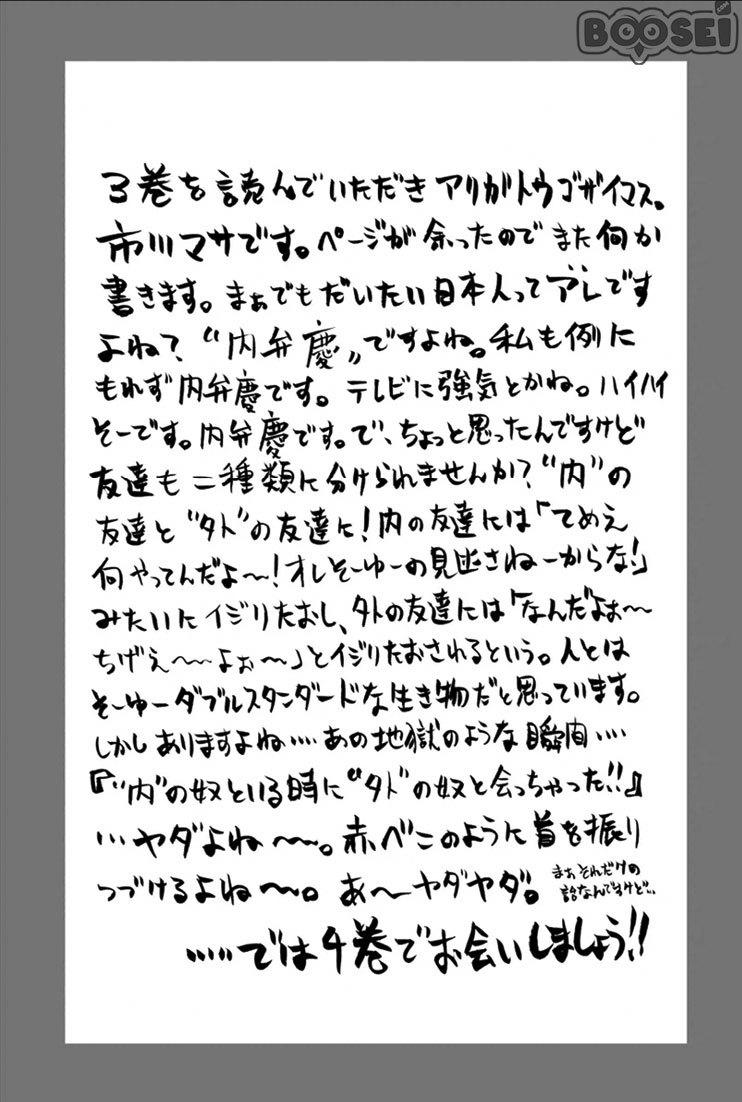 BOOSEI.com
3巻を読んでいただきアリガトウゴザイマス。
市川マサです。ページが余ったのでまた何か
書きます。まぁでもだいたい日本人ってアレです
よね?“内弁慶〟ですよね。私も例に
もれず内弁慶です。テレビに強気とかね。ハイハイ
そーです。内弁慶です。で、ちょっと思ったんですけど
友達も二種類に分けられませんか?“内”の
友達と“外”の友達に!内の友達には「てめえ
何やってんだよ〜!オレそーゆーの見逃さねーからな!」
みたいにイジりたおし、外の友達には「なんだよぉ〜
ちげえ〜〜よぉ〜」とイジりたおされるという。人とは
そーゆーダブルスタンダードな生き物だと思っています。
しかしありますよね‥‥あの地獄のような瞬間‥‥
『“内”の奴といる時に“外”の奴と会っちゃった!!』
…ヤダよね〜〜。赤べこのように首を振り
つづけるよね〜〜。あ〜ヤダヤダ。
まぁそれだけの
話なんですけど…
……では4巻でお会いしましょう!!